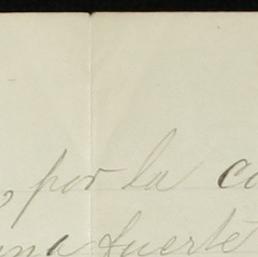 , por la co
una fuerte